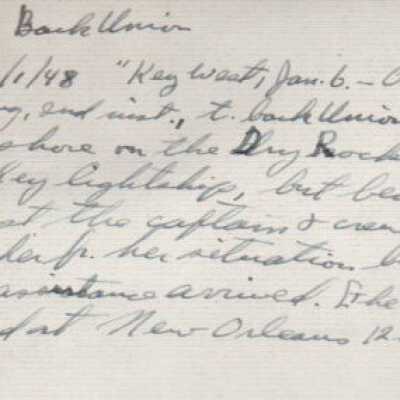 Bark Union
/1/48 "Key West, Jan. 6. —
, 2nd inst., t. bark Union
shore on the Dry Rock
Key lightship, but be
st the captain & crew
her situation b
assistance arrived. & he
d at New Orleans 12